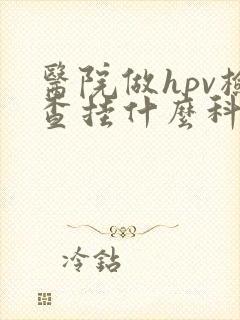 醫院做hpv檢
查挂什麼科
冷鉆